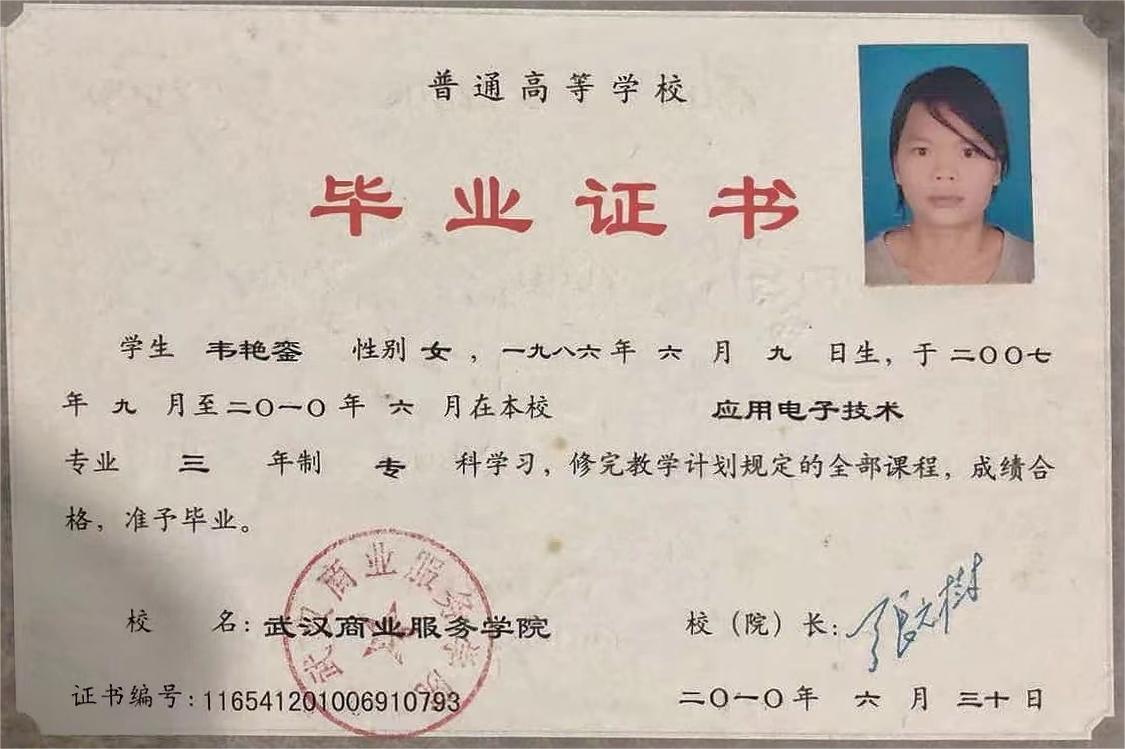 普通高等学校
毕业证书
学生 韦艳銮 性别 女 ，一九八六年 六 月 九 日生，于二〇〇七
年 九 月至二〇一〇年 六 月在本校 应用电子技术
专业 三 年制 专 科学习，修完教学计划规定的全部课程，成绩合
格，准予毕业。
武汉商业服务学院
校 名：武汉商业服务学院
校（院）长：张文樹
证书编号：116541201006910793
二〇一〇年 六 月 三十日